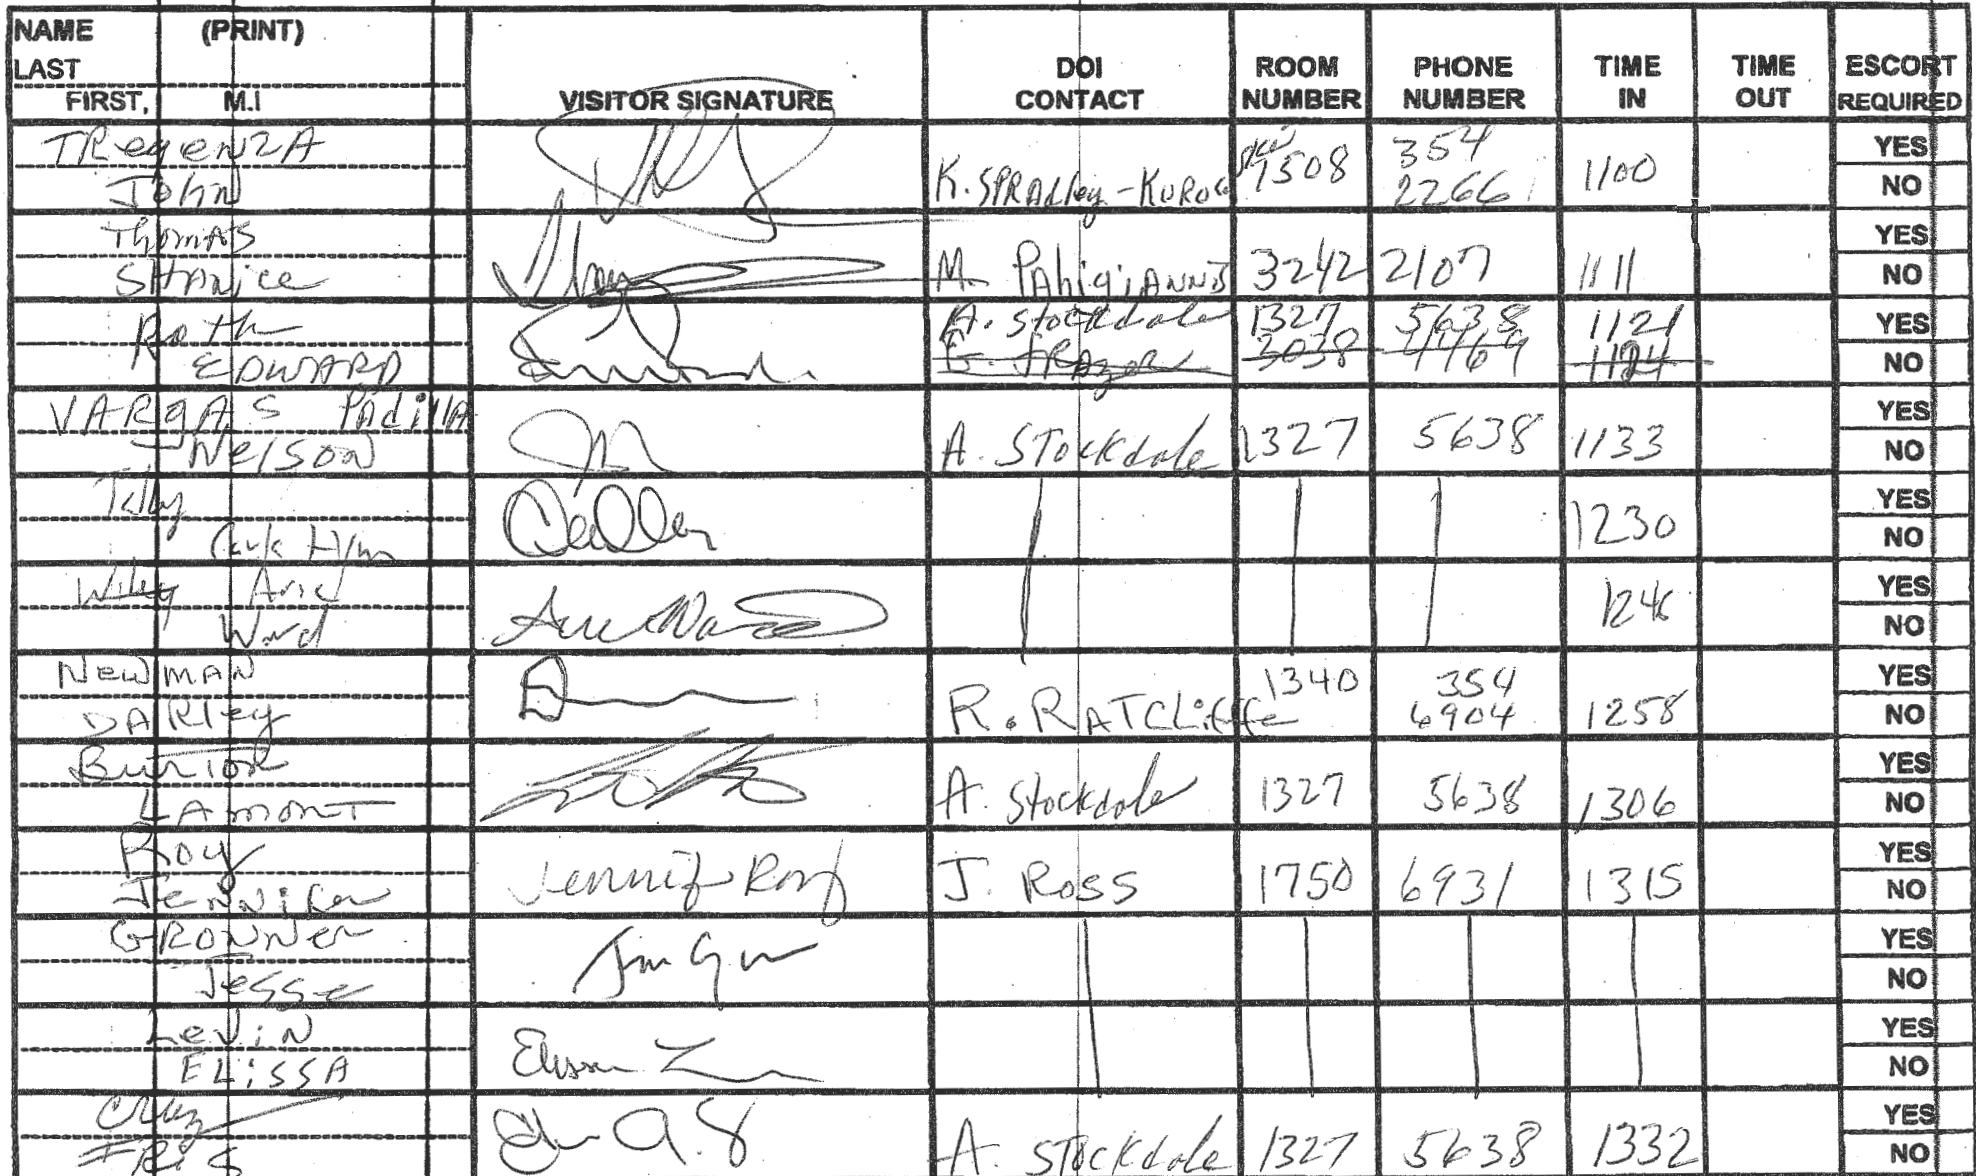 NAME (PRINT)
LAST
FIRST, M.I
VISITOR SIGNATURE
DOI CONTACT
ROOM NUMBER
PHONE NUMBER
TIME IN
TIME OUT
ESCORT REQUIRED
TRegenzA
John
K. SPRAdley-Kurow 7508 354 2266 1100
YES
NO
ThomAS
SHANice
M. PAhigiANNis 3242 2107 1111
YES
NO
Roth
EDWARD
A. Stockdale 1327 5638 1121
3038 4469 1124
YES
NO
VARgAS PAdillA
Nelson
A. Stockdale 1327 5638 1133
YES
NO
1230
YES
NO
Wiley Ariel
Ward
YES
NO
NewmAN
DARley
R. RATCLiffe 1340 354 6904 1258
YES
NO
Burton
LAmonT
A. Stockdale 1327 5638 1306
YES
NO
Roy
JeNNifer
Jennif Roy
J. Ross 1750 6931 1315
YES
NO
GRONNer
Jesse
YES
NO
LeviN
ELiSSA
YES
NO
Cruz
IRiS
A. Stockdale 1327 5638 1332
YES
NO